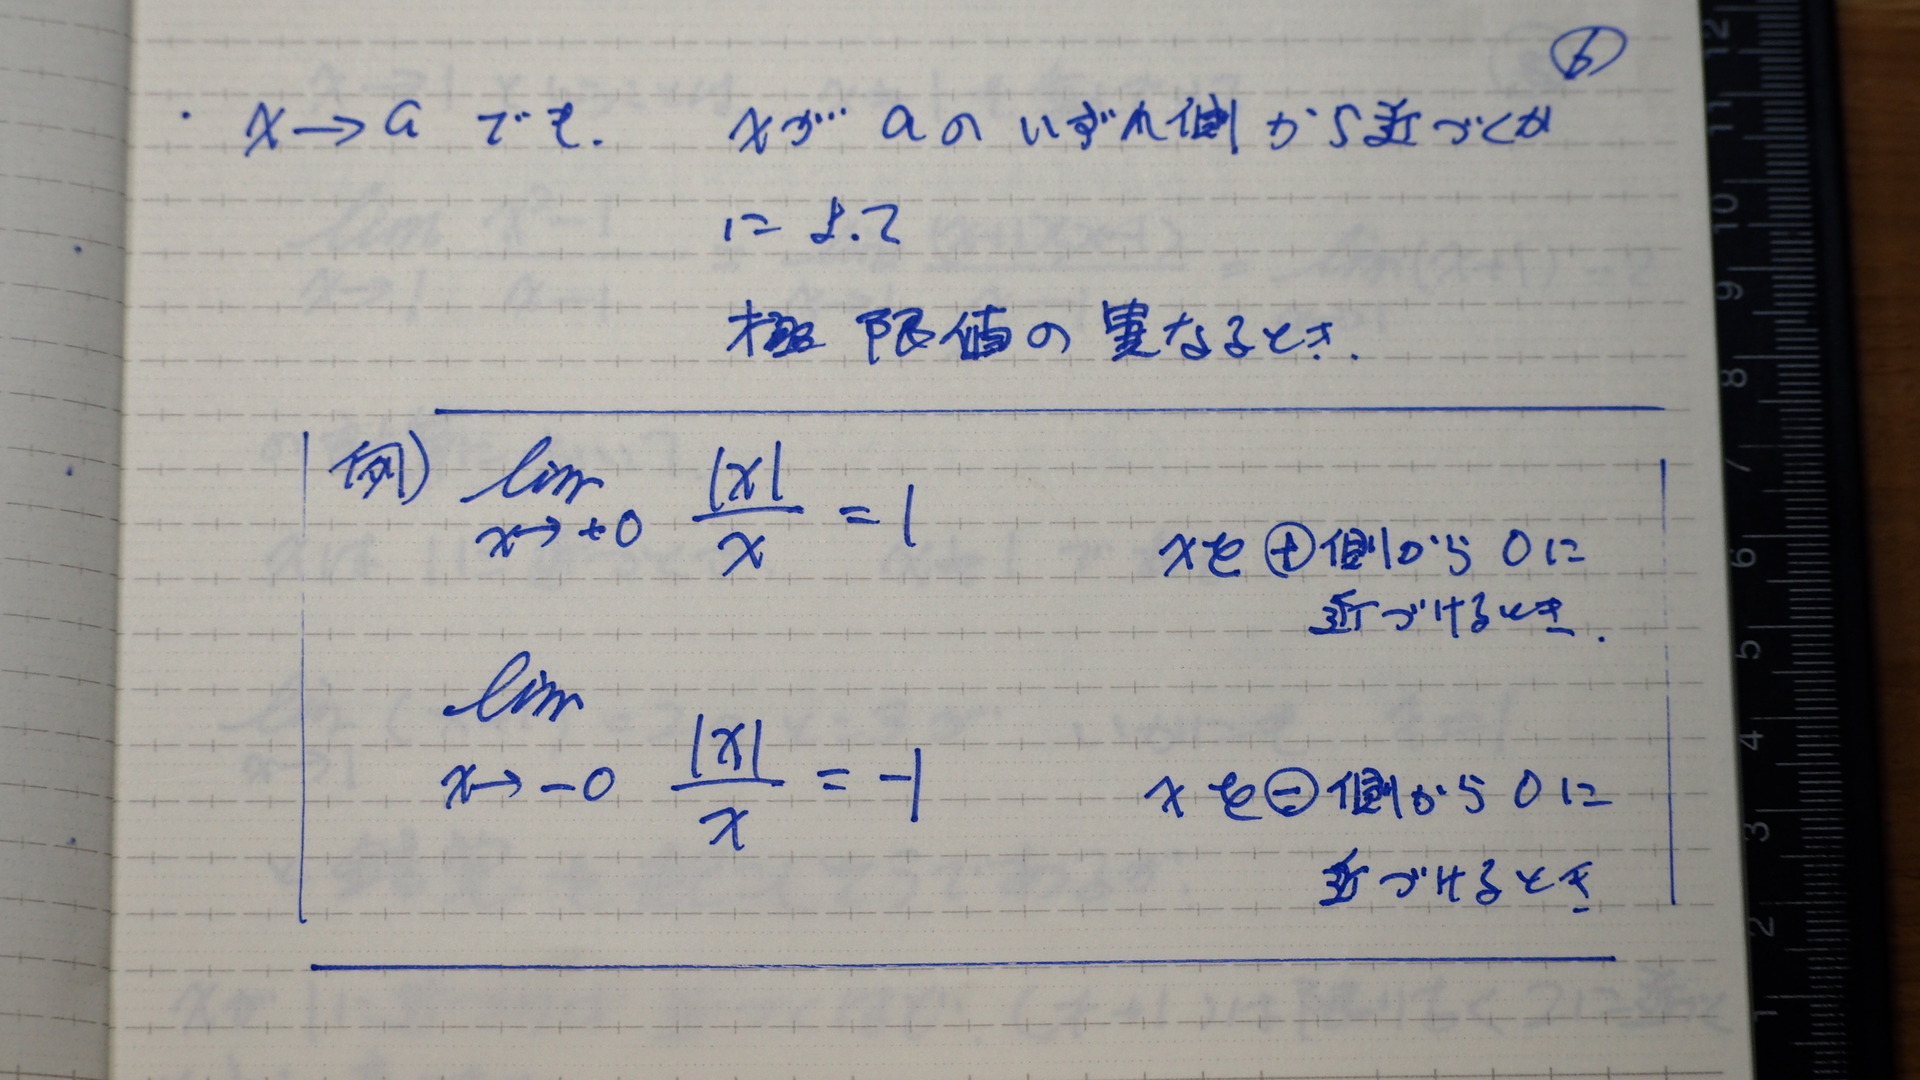 ⑥
・ x→a でも. xが aの いずれ側から近づくか
によって
極限値の異なるとき.
例) lim x→+0 |x|/x = 1
xを⊕側から0に
近づけるとき.
lim x→-0 |x|/x = -1
xを⊖側から0に
近づけるとき
12
11
10
9
8
7
6
5
4
3
2
1